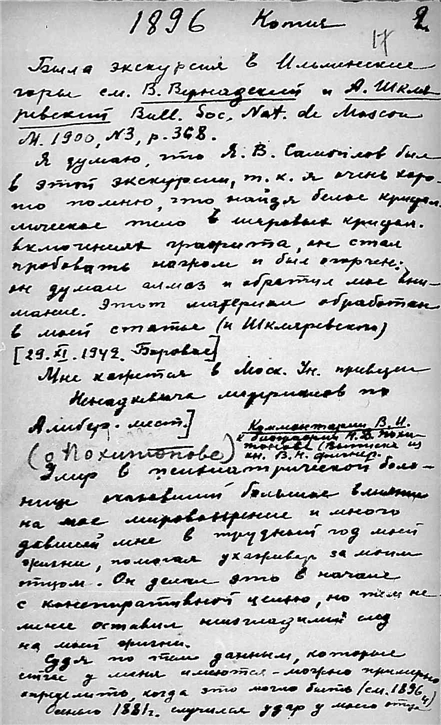 1896 Копия 2
17
Была экскурсия в Ильменские
горы см. В. Вернадский и А. Шкля-
ревский Bull. Soc. Nat. de Moscou
М. 1900, N3, p. 368.
Я думаю, что Я. В. Самойлов был
в этой экскурсии, т. к. я очень хоро-
шо помню, что найдя белое кристал-
лическое тело в шаровых кристал.
включениях графита, он стал
пробовать ногтем и был огорчен:
он думал алмаз и обратил мое вни-
мание. Этот материал обработан
в моей статье (и Шкляревского)
[29.XI.1942. Боровое]
Мне кажется в Моск. Ун. приведен
Ненадкевича материалов по
Алибер. мест.]
(о Похитонове) Комментарии В. И.
к биографии Н. Д. Похи-
тонова (Выписка из
кн. В. Н. Фигнер.
Умер в психиатрической боль-
нице оказавший большое влияние
на мое мировоззрение и много
давший мне в трудный год моей
жизни, помогая уходу за моим
отцом. Он делал это в начале
с конспиративной целью, но тем не-
менее оставил неизгладимый след
на моей жизни.
Судя по тем данным, которые
сейчас у меня имеются - можно примерно
определить, когда это могло быть (см. 1896
Осенью 1881 г. случился удар у моего отца